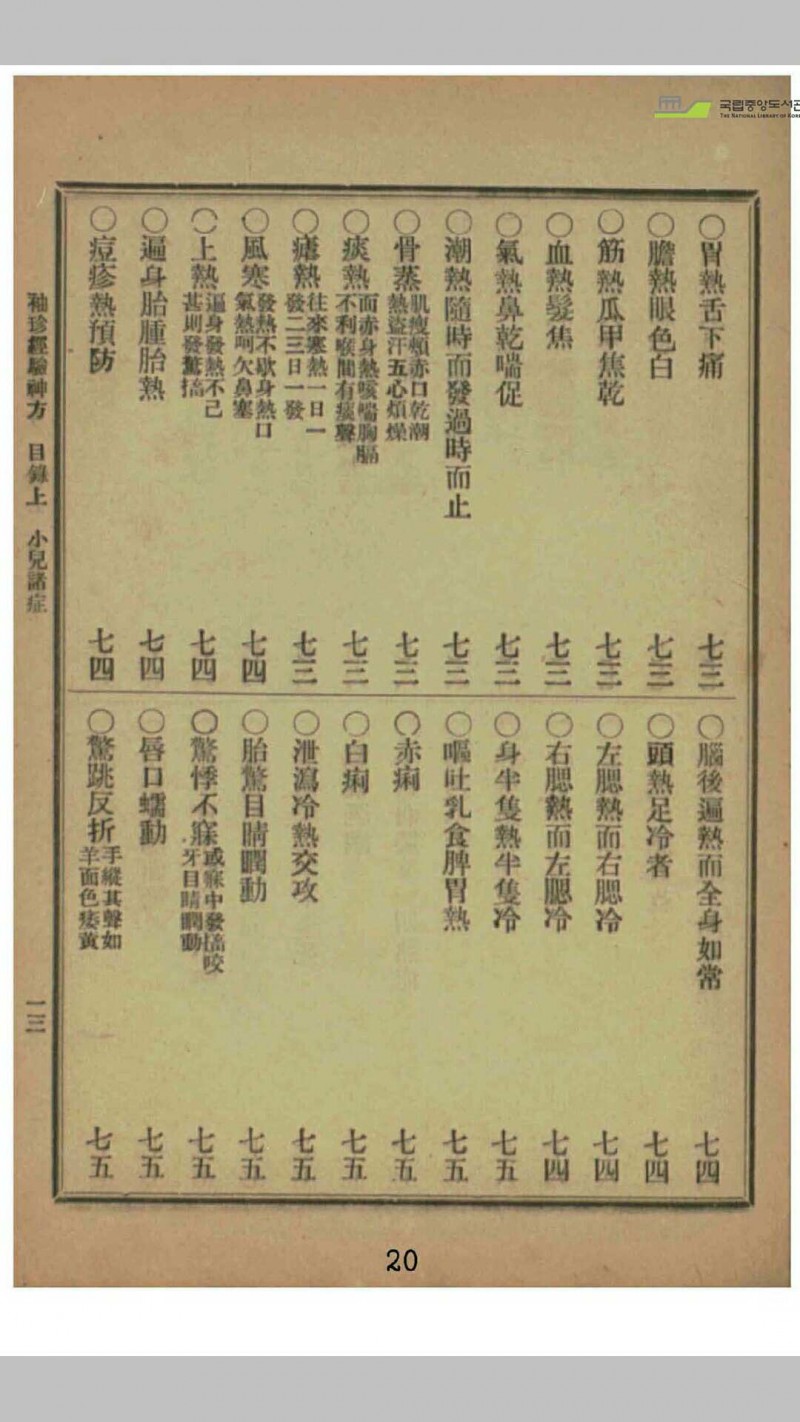 국립중앙도서관
THE NATIONAL LIBRARY OF KOREA
〇胃熱舌下痛 七三
〇膽熱眼色白 七三
〇筋熱瓜甲焦乾 七三
〇血熱髮焦 七三
〇氣熱鼻乾喘促 七三
〇潮熱隨時而發過時而止 七三
〇骨蒸 肌瘦頰赤口乾潮熱盜汗五心煩燥 七三
〇痰熱 面赤身熱咳喘胸膈不利喉間有痰聲 七三
〇瘧熱 往來寒熱一日一發二三日一發 七三
〇風寒 發熱不歇身熱口氣熱呵欠鼻塞 七四
〇上熱 遍身發熱不已甚則發驚搐 七四
〇遍身胎腫胎熱 七四
〇痘疹熱預防 七四
〇腦後遍熱而全身如常 七四
〇頭熱足冷者 七四
〇左腮熱而右腮冷 七四
〇右腮熱而左腮冷 七四
〇身半隻熱半隻冷 七五
〇嘔吐乳食脾胃熱 七五
〇赤痢 七五
〇白痢 七五
〇泄瀉冷熱交攻 七五
〇胎驚目睛瞤動 七五
〇驚悸不寐 或寐中發搐咬牙目睛瞤動 七五
〇唇口蠕動 七五
〇驚跳反折 手縱其聲如羊面色痿黃 七五
袖珍經驗神方 目錄上 小兒諸症
一三
20